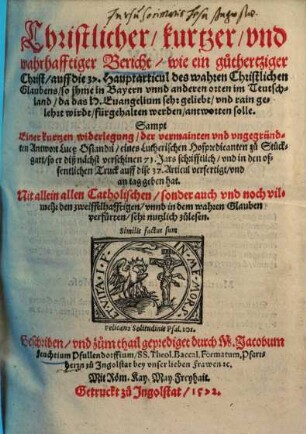 Christlicher / kurtzer / vnd
warhafftiger Bericht / wie ein gůthertziger
Christ / auff die 37. Hauptarticul des wahren Christlichen
Glaubens / so jhme in Bayern vnnd anderen orten im Teutsch-
land / da das H. Euangelium sehr geliebt / vnd rain ge-
lehrt wirdt / fürgehalten werden / antworten solle.
Sampt
Einer kurtzen widerlegung / der vermainten vnd vngegründ-
ten Antwort Lucę Osiandri / eines Lutherischen Hofpredicanten zů Stůck-
gart / so er diß nåchst verschinen 71. Jars schrifftlich / vnd in den of-
fentlichen Truck auff dise 37. Articul verfertigt / vnd
an tag geben hat.
Nit allein allen Catholischen / sonder auch vnd noch vil-
mehr den zweiffelhafftigen / vnnd in dem wahren Glauben
verfürten / sehr nutzlich zůlesen.
Similis factus sum
ET VIVAT
IN ME MORS
Pelicano Solitudinis Psal. 101.
Beschriben / vnd zům thail geprediget durch M. Jacobum
Rachtiam Pfullendorffium / SS. Theol. Baccal. Formatum, Pfarr-
herrn zů Jngolstat bey vnser lieben Frawen ꝛc.
Mit Róm. Kay. May Freyhait.
Getruckt zů Jngolstat / 1572.